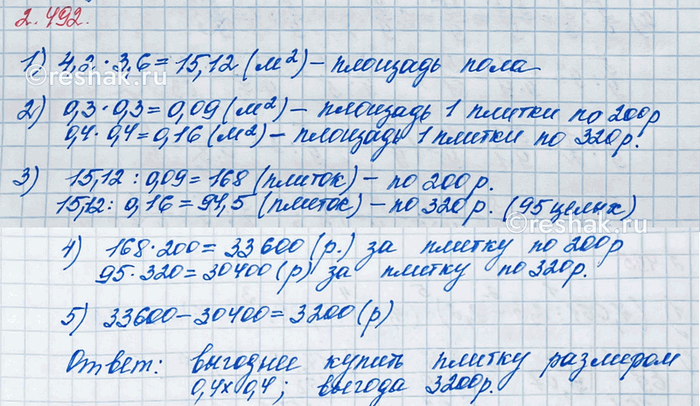 2.492.
1) 4,2 · 3,6 = 15,12 (м²) – площадь пола
2) 0,3 · 0,3 = 0,09 (м²) – площадь 1 плитки по 200р
0,4 · 0,4 = 0,16 (м²) – площадь 1 плитки по 320р.
3) 15,12 : 0,09 = 168 (плиток) – по 200р.
15,12 : 0,16 = 94,5 (плиток) – по 320р. (95 целих)
4) 168 · 200 = 33600 (р.) за плитку по 200р
95 · 320 = 30400 (р) за плитку по 320р.
5) 33600 – 30400 = 3200 (р)
Ответ: выгоднее купить плитку размером
0,4 х 0,4; выгода 3200р.